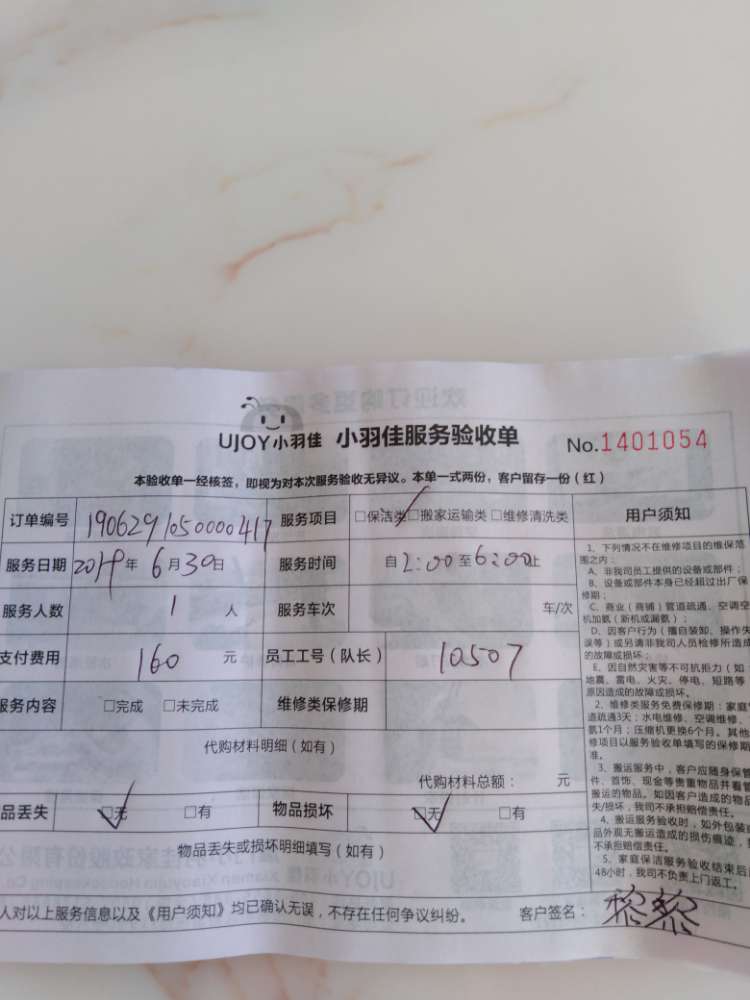 UJOY小羽佳 小羽佳服务验收单 No.1401054
本验收单一经核签，即视为对本次服务验收无异议。本单一式两份，客户留存一份（红）
订单编号 1906291050000417 服务项目 □保洁类□搬家运输类□维修清洗类 用户须知
服务日期 2019年 6月30日 服务时间 自2:00至6:00止
服务人数 1 人 服务车次 车/次
支付费用 160 元 员工工号（队长） 10507
服务内容 □完成 □未完成 维修类保修期
代购材料明细（如有）
代购材料总额： 元
品丢失 □无 □有 物品损坏 □无 □有
物品丢失或损坏明细填写（如有）
人对以上服务信息以及《用户须知》均已确认无误，不存在任何争议纠纷。 客户签名：黎黎
1、下列情况不在维修项目的维保范
围之内：
A、非我司员工提供的设备或部件；
B、设备或部件本身已经超过出厂保
修期；
C、商业（商铺）管道疏通、空调空
机加氨（新机或漏氨）；
D、因客户行为（擅自装卸、操作失
误等）或另请非我司人员检修所造成
的故障或损坏；
E、因自然灾害等不可机拒力（如
地震、雷电、火灾、停电、短路等
原因造成的故障或损坏。
2、维修类服务免费保修期：家庭
道疏通3天；水电维修、空调维修、
氨1个月；压缩机更换6个月。其他
修项目以服务验收单填写的保修期
准。
3、搬运服务中，客户应随身保管
件、首饰、现金等贵重物品并看管
搬运的物品。如因客户造成的物品
失/损坏，我司不承担赔偿责任。
4、搬运服务验收时，如外包装
品外观无搬运造成的损伤痕迹，
不承担赔偿责任。
5、家庭保洁服务验收结束后
48小时，我司不负责上门返工。